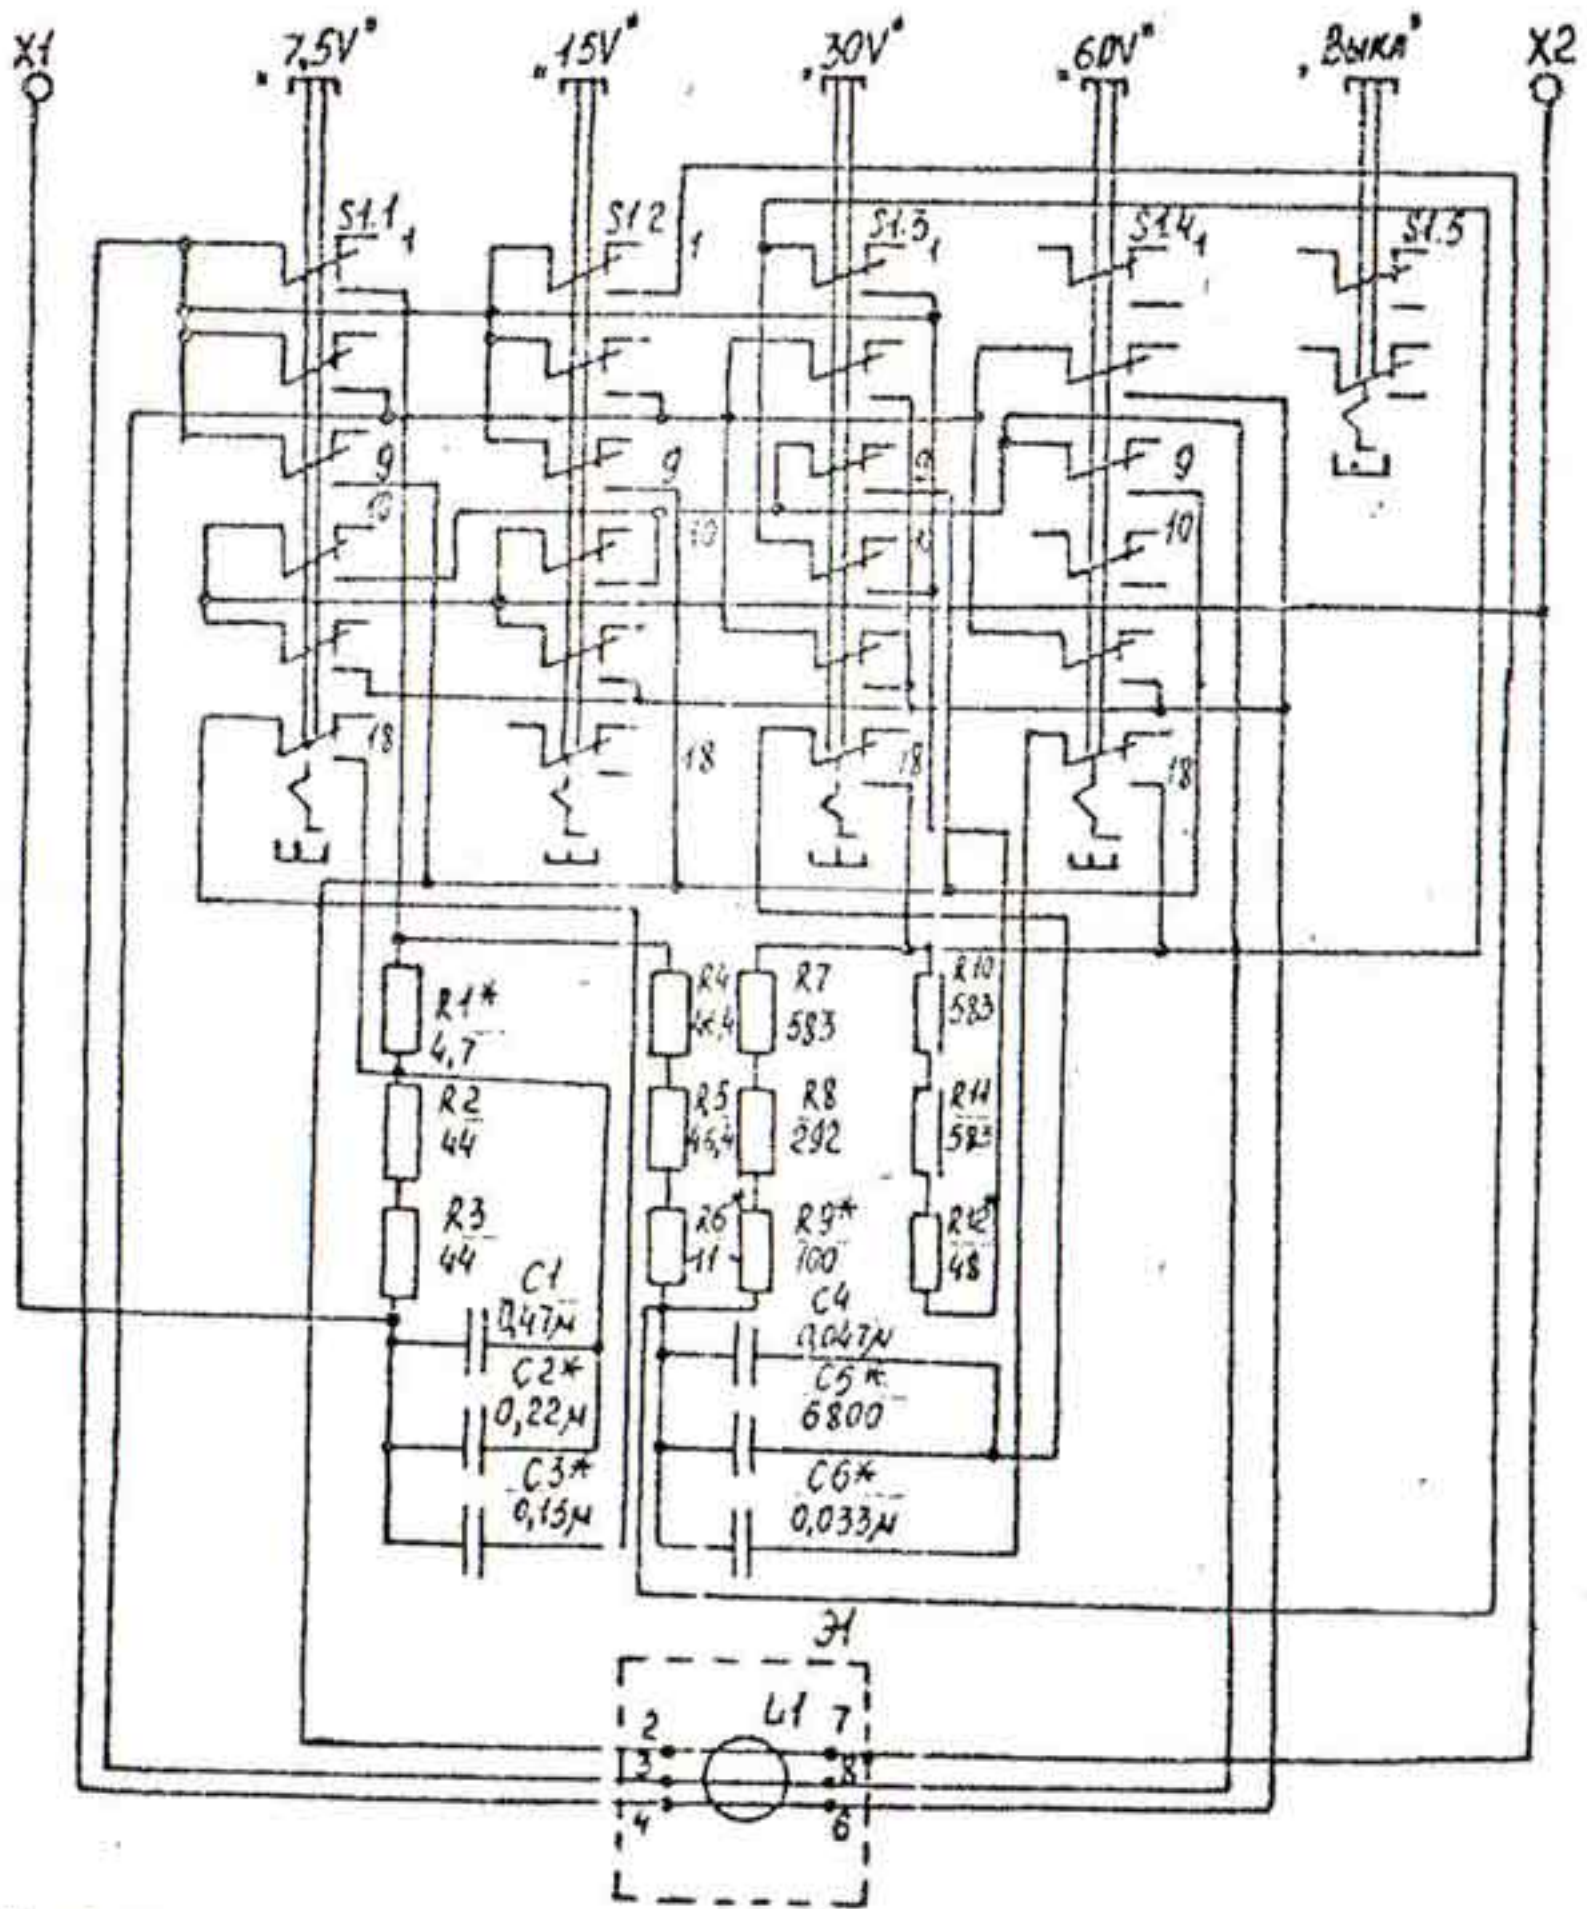 X1
„7,5V"
„15V"
„30V"
„60V"
„Выкл"
X2
S1.1 1
S1.2 1
S1.3 1
S1.4 1
S1.5
9
9
9
10
10
10
18
18
18
18
R1*
4,7
R2
44
R3
44
R4
R5
46,4
R6
11
R7
583
R8
292
R9*
100
R10
583
R11
583
R12
48
C1
0,47м
C2*
0,22м
C3*
0,15м
C4
0,047м
C5*
6800
C6*
0,033м
Э1
L1
2
7
3
8
4
6